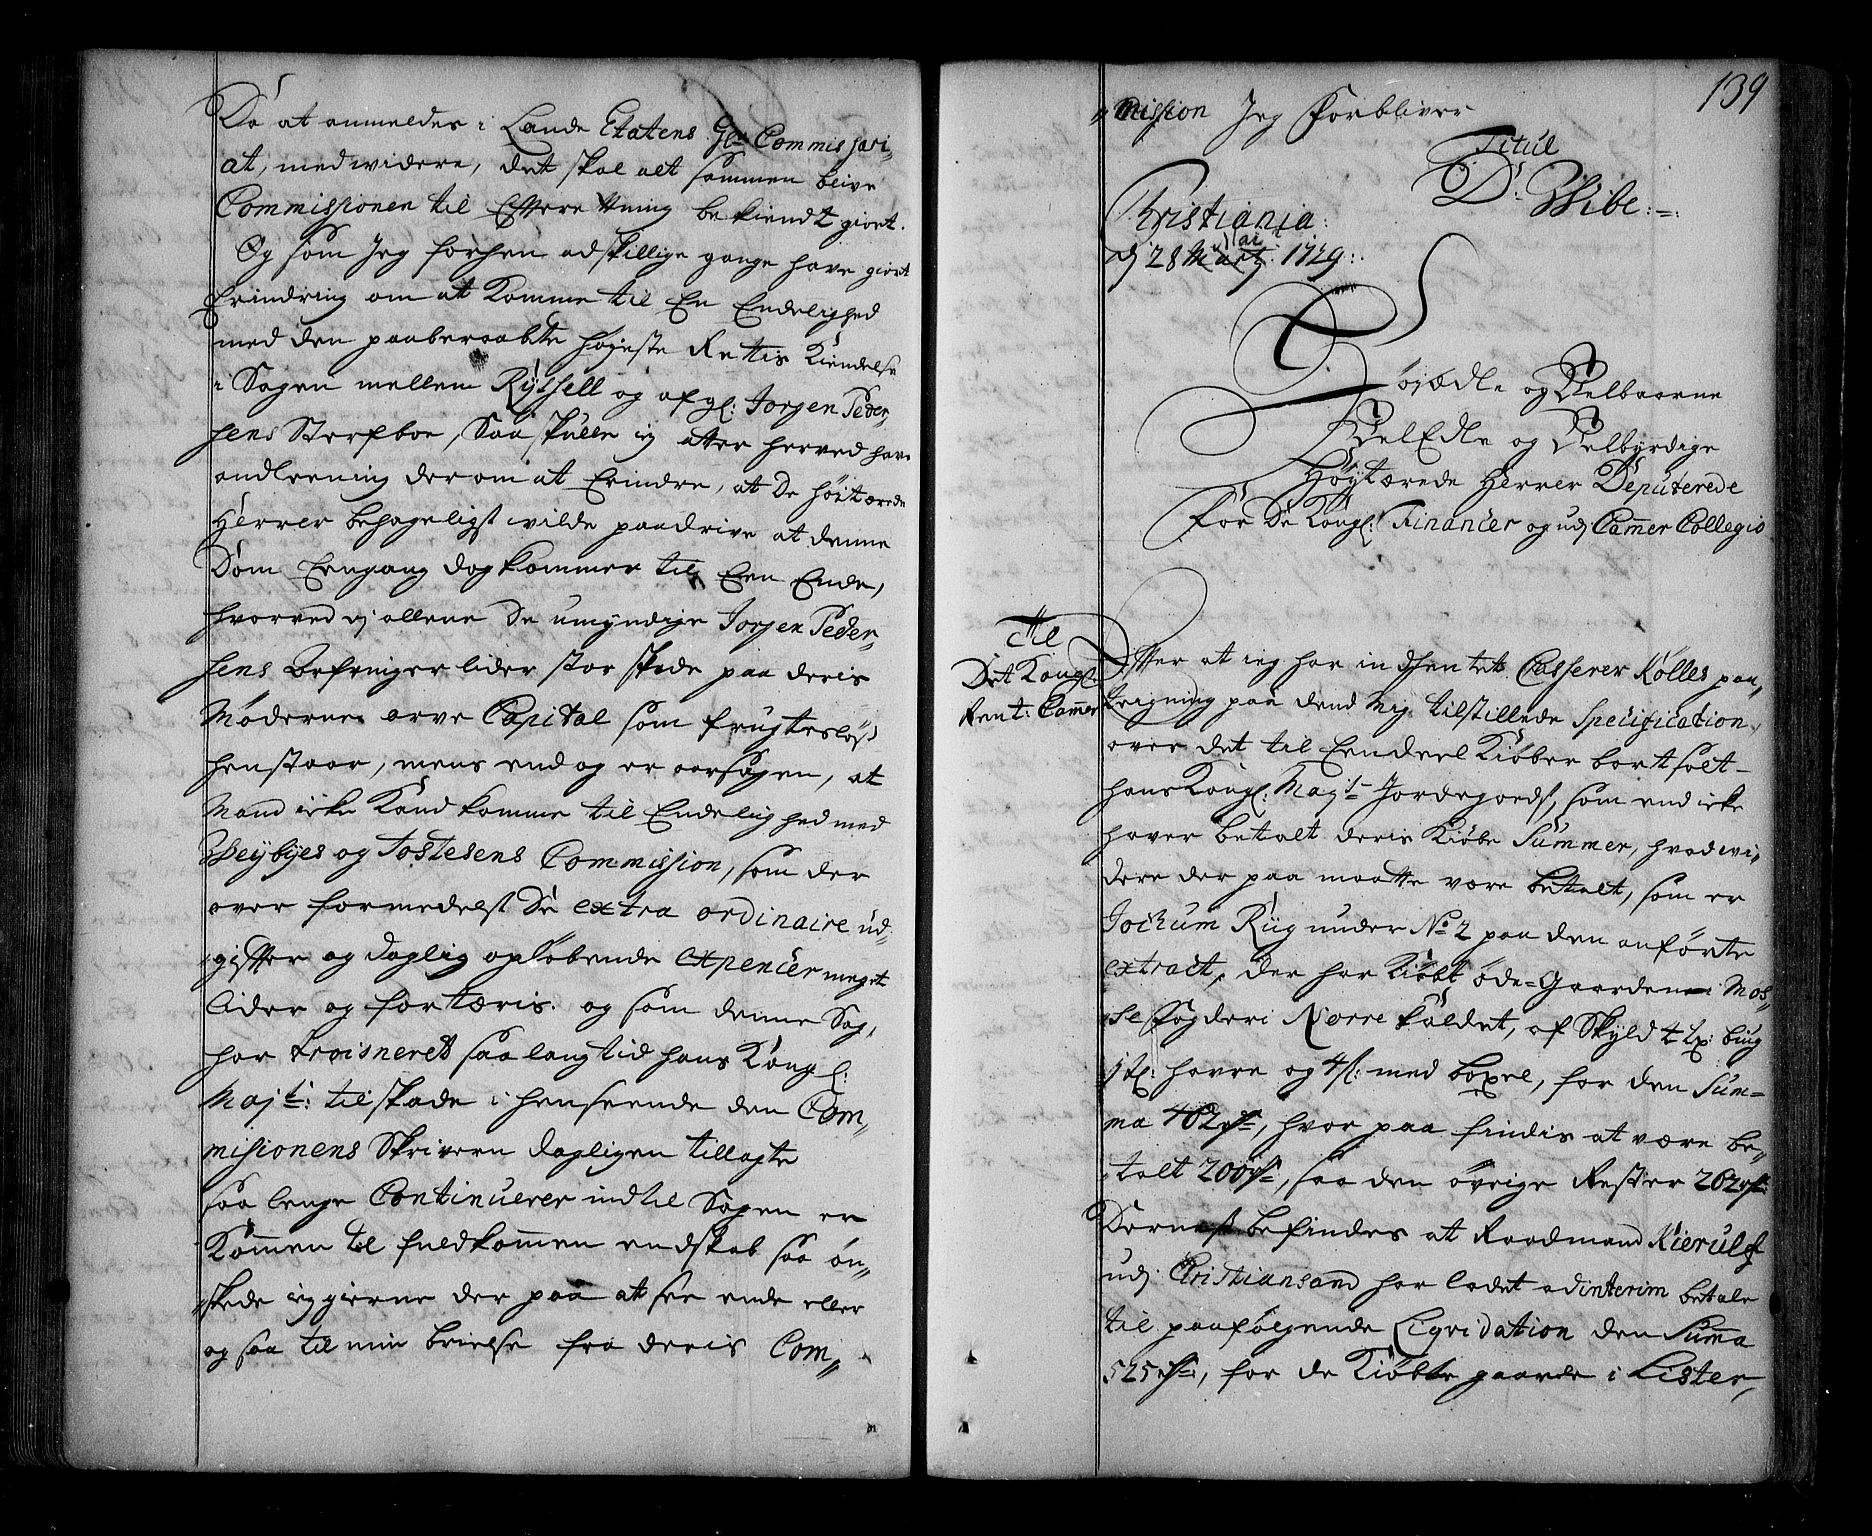 Da at anmeldes i Lande Etatens Gl: Commissari-
at, med widere, det skal alt sammen blive
Commissionen til Efterretning bekiendt giort.
Og som Jeg forhen adskillige gange have giort
Erindring om at komme til En Endelighed
med den paaberaabte højeste Rettis Kiendelse
i Sagen mellem Rÿssell og afgl: Jorgen Peder„
sens Sterfboe, Saa skulle ieg atter herved have
andleening derom at Erindre, at De høitærede
Herrer behageligst wilde paadrive at denne
Dom Eengang dog kommer til Een Ende,
hvorved ej allene De umyndige Jorgen Peder„
sens Arfvinger lider stor skade paa deris
Møderne arve Capital som frugtesløs
henstaar, mens end og er aarsagen, at
Mand icke Kand komme til Endelighed med
Weÿbÿes og Tostesens Commission, som der
over formedelst De extra ordinaire ud„
gifter og daglig opløbende expencer meget
lider og fortæris. og som denne Sag,
har troisneret saa lang tid hans Kongl:
Majts: til skade i henseende den Com„
missionens Skriveren dagligen tillagte
saa lenge Continuerer indtil Sagen er
Kommen til fuldkommen endskab saa øn„
„skede ieg gierne der paa at see ende eller
og saa til min brielse fra deris Com„
139
„mission Jeg Forbliver
Titul
D: Wibe:=:
Christiania:
dj 28 Martj 1729:.
Højædle og Velbaarne
Vel Edle og Velbyrdige
Høÿtærede Herrer Deputerede
For De Kongl: Financer og udj Camer Collegio
Til
Det Kongl:
Rent: Camer
Efter at ieg har indhentet Casserer Kølles paa„
tegning paa dend Mig tilstillede Specification
over det til Eendeel Kiøber bortsolt
hans Kongl: Mayts Jordegoeds, som end icke
haver betalt deris Kiøbe Summer, hvad wi„
dere der paa maatte være betalt, som er
Jochum Rüg under No 2 paa den anførte
extract, der har Kiøbt øde=Gaarden i Mos„
„se fogderi Nørre kaldet, af Skyld 2 Lp: biug
1 Lp: havre og 4 s: med boxel, for den Sum=
ma 402 rd:, hvor paa findis at være be„
„talt 200 rd:, saa den øvrige Rester 202 rd:
Dernest befindes at Raadmand Kierulf
udj Christiansand har ladet adinterim betale
til paafølgende Liqvidation den Suma
525 rd:, for de Kiøbte gaarde i Lister,